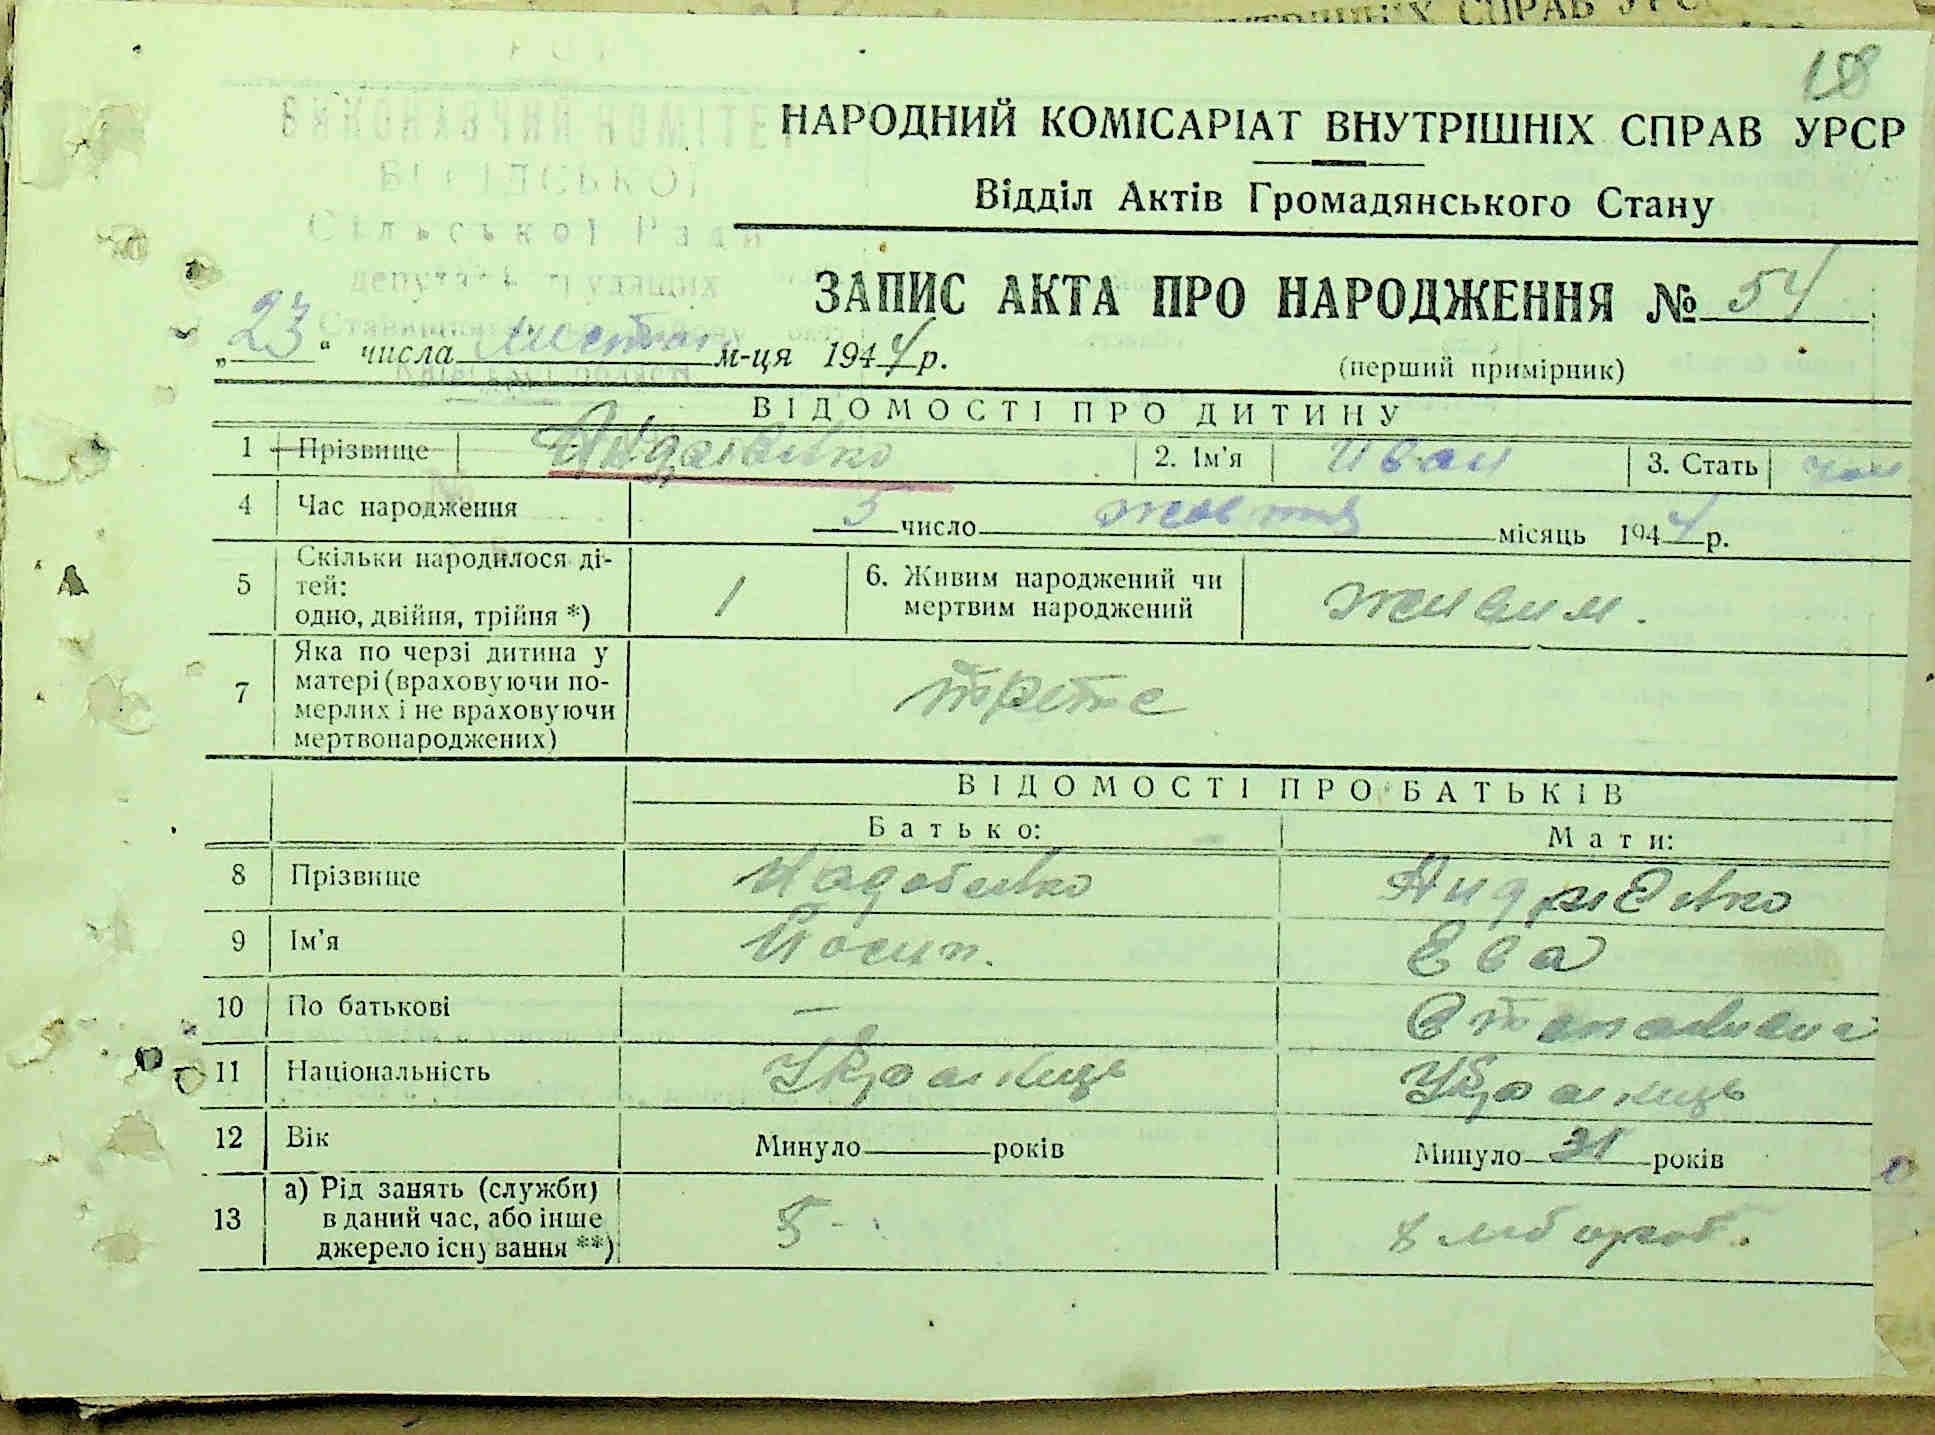 18
НАРОДНИЙ КОМІСАРІАТ ВНУТРІШНІХ СПРАВ УРСР
Відділ Актів Громадянського Стану
ЗАПИС АКТА ПРО НАРОДЖЕННЯ № 54
„23“ числа листоп м-ця 1944 р.
(перший примірник)
ВІДОМОСТІ ПРО ДИТИНУ
1 Прізвище Андрієнко 2. Ім'я Иван 3. Стать чол
4 Час народження 5 число жовтня місяць 1944 р.
5 Скільки народилося ді-
тей:
одно, двійня, трійня *) 1
6. Живим народжений чи
мертвим народжений живим.
7 Яка по черзі дитина у
матері (враховуючи по-
мерлих і не враховуючи
мертвонароджених) третє
ВІДОМОСТІ ПРО БАТЬКІВ
Батько: Мати:
8 Прізвище Андрієнко
9 Ім'я Йосип. Ева
10 По батькові — Степановна
11 Національність Украинць Украинць
12 Вік Минуло років Минуло 31 років
13 а) Рід занять (служби)
в даний час, або інше
джерело існування **)